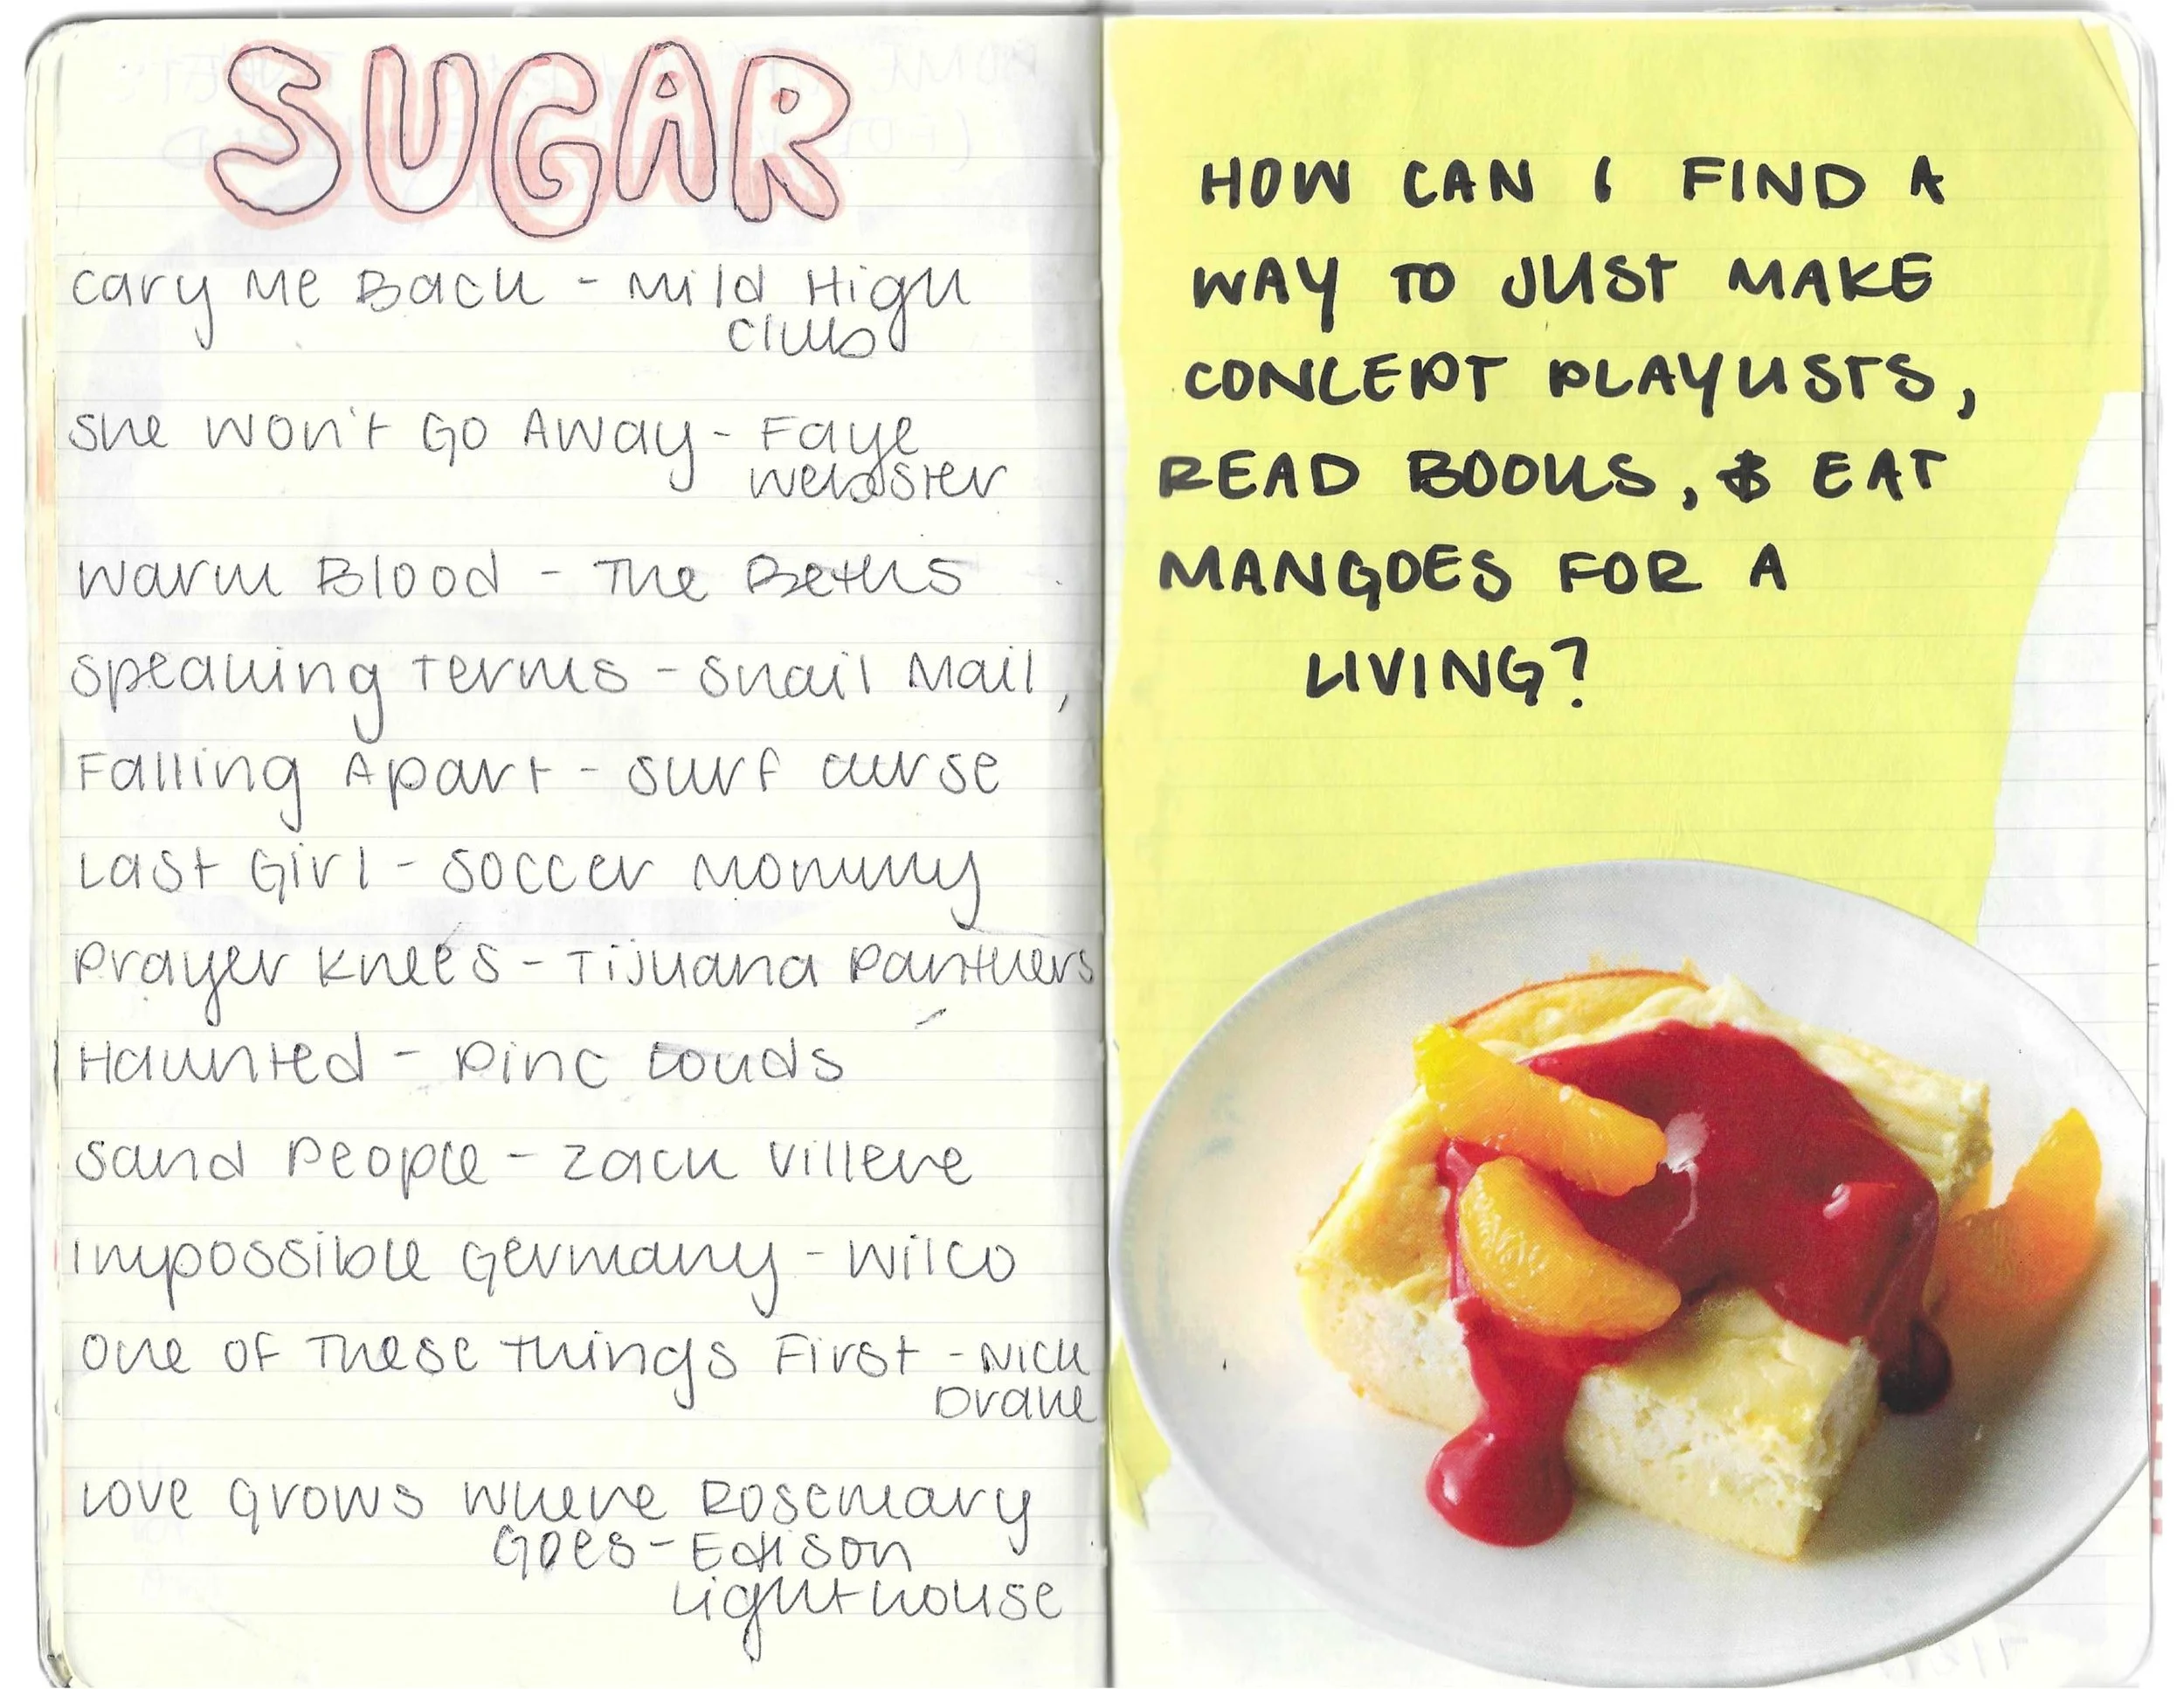 SUGAR
Cary Me Back - Mild High
Club
She Won't Go Away - Faye
Webster
Warm Blood - The Beths
Speaking Terms - Snail Mail,
Falling Apart - Surf Curse
Last Girl - Soccer Mommy
Prayer Knees - Tijuana Panthers
Haunted - Pinc Louds
Sand People - Zack Villere
Impossible Germany - Wilco
One of These Things First - Nick
Drake
Love Grows Where Rosemary
Goes - Edison
Lighthouse
HOW CAN I FIND A
WAY TO JUST MAKE
CONCEPT PLAYLISTS,
READ BOOKS, & EAT
MANGOES FOR A
LIVING?